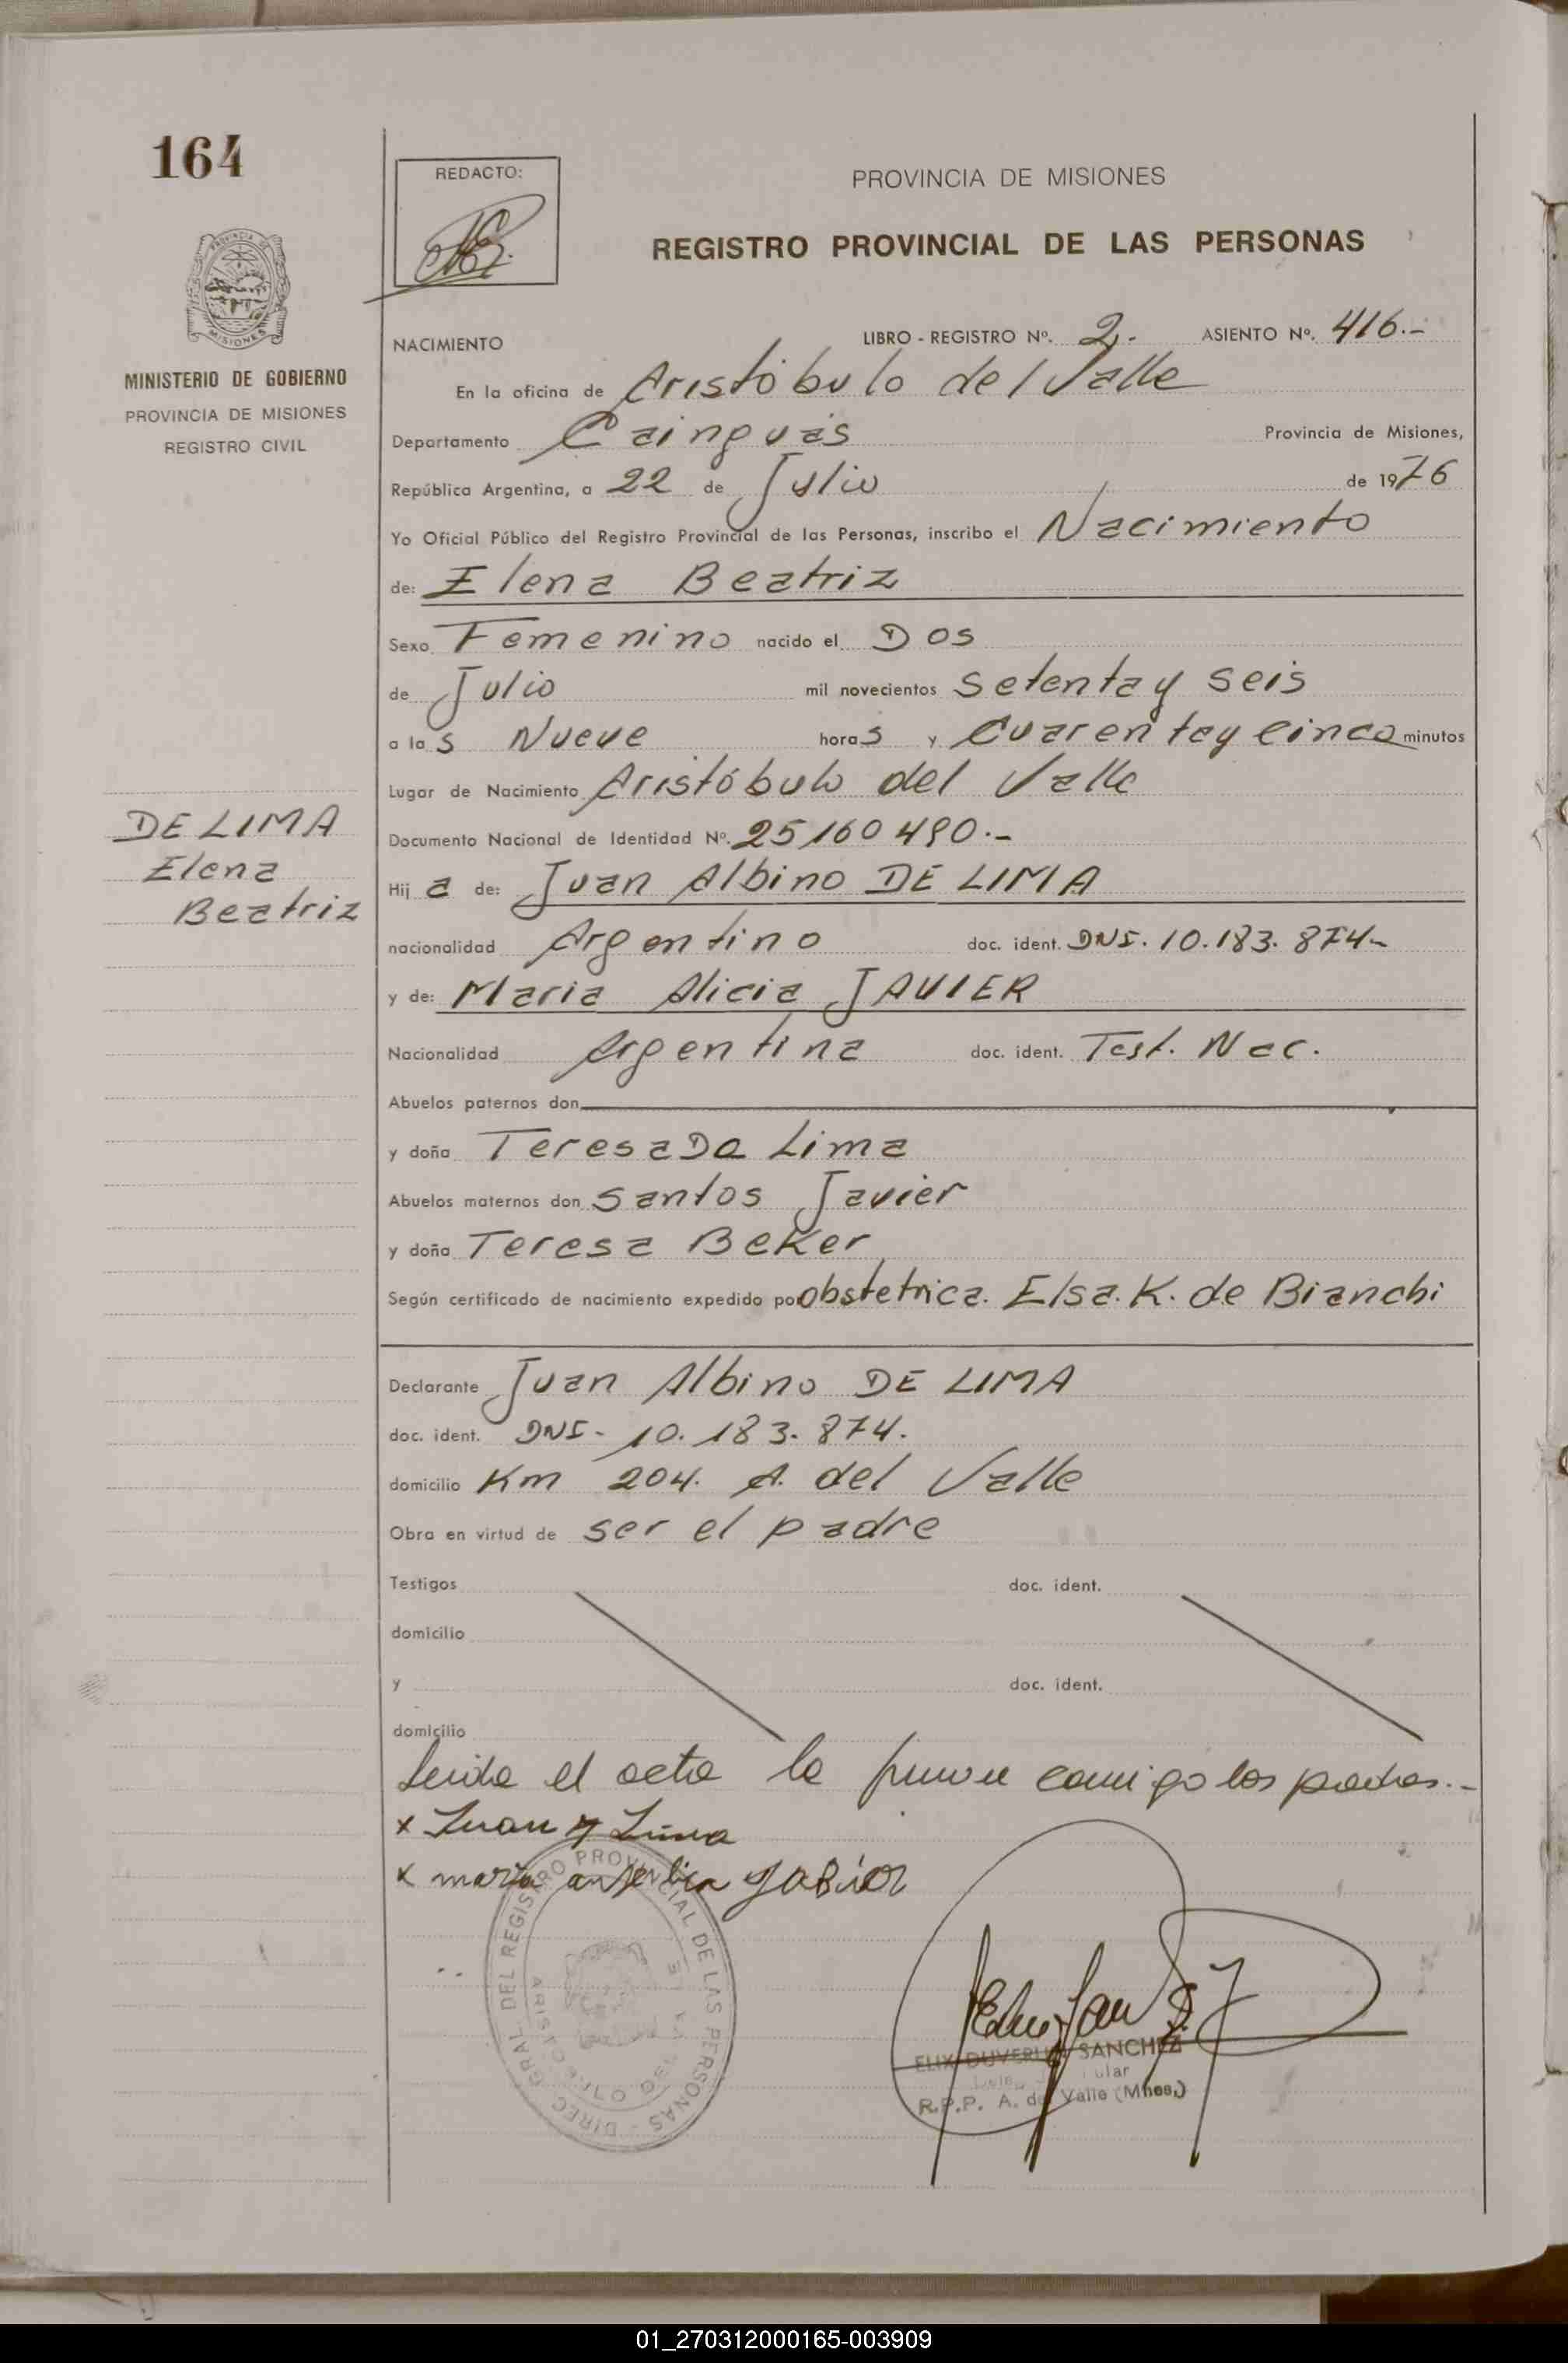 164
REDACTO:
PROVINCIA DE MISIONES
REGISTRO PROVINCIAL DE LAS PERSONAS
PROVINCIA DE
MISIONES
MINISTERIO DE GOBIERNO
PROVINCIA DE MISIONES
REGISTRO CIVIL
NACIMIENTO LIBRO - REGISTRO Nº. 2.- ASIENTO Nº. 416.-
En la oficina de Aristóbulo del Valle
Departamento Cainguás Provincia de Misiones,
República Argentina, a 22 de Julio de 1976
Yo Oficial Público del Registro Provincial de las Personas, inscribo el Nacimiento
de: Elena Beatriz
Sexo Femenino nacido el Dos
de Julio mil novecientos setenta y seis
a las Nueve horas y Cuarenta y cinco minutos
Lugar de Nacimiento Aristóbulo del Valle
Documento Nacional de Identidad Nº. 25160490.-
DE LIMA
Elena
Beatriz
Hija de: Juan Albino DE LIMA
nacionalidad Argentino doc. ident. DNI. 10.183.874-
y de: Maria Alicia JAVIER
Nacionalidad Argentina doc. ident. Test. Nac.
Abuelos paternos don
y doña Teresa Da Lima
Abuelos maternos don Santos Javier
y doña Teresa Beker
Según certificado de nacimiento expedido por obstetrica. Elsa. K. de Bianchi
Declarante Juan Albino DE LIMA
doc. ident. DNI- 10.183.874.
domicilio Km 204. A. del Valle
Obra en virtud de ser el padre
Testigos doc. ident.
domicilio
y doc. ident.
domicilio
Leida el acta la firman conmigo los padres.-
x Juan Lima
x maria
DIREC. GRAL. DEL REGISTRO PROVINCIAL DE LAS PERSONAS
SANCHEZ
R.P.P. A. del Valle (Mnes.)
01_270312000165-003909